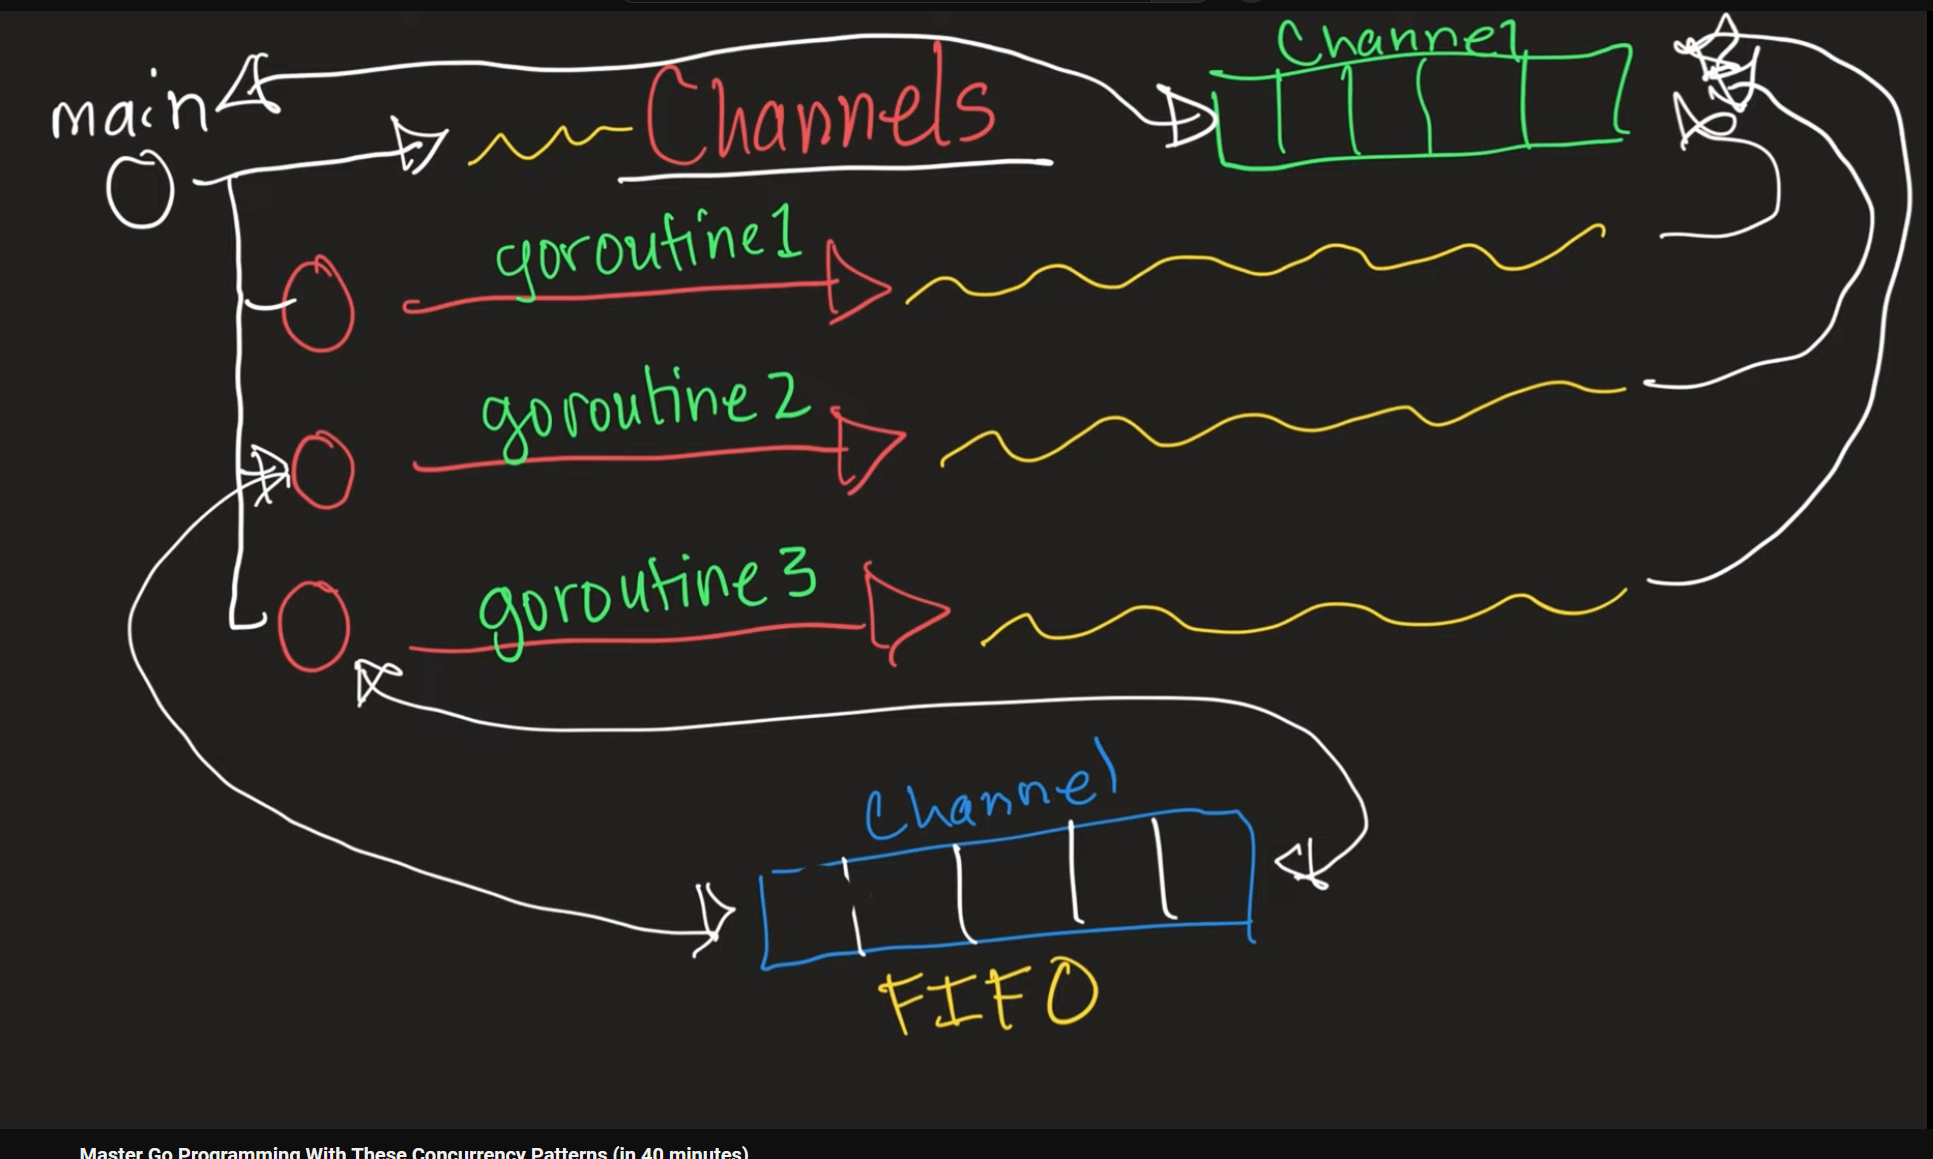 Channel
main
Channels
goroutine1
goroutine2
goroutine3
Channel
FIFO
Master Go Programming With These Concurrency Patterns (in 40 minutes)